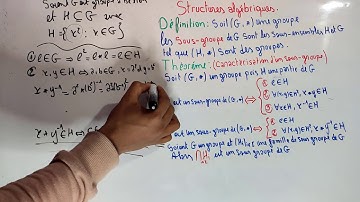 Soient G un groupe abélien
et H ⊆ G avec
H = {x² : x ∈ G}
① e ∈ G ⇒ e² = e*e = e ∈ H
② x, y ∈ H ⇒ ∃ a, b ∈ G,
x * y⁻¹ =
x * y⁻¹ ∈ H
Structures algébriques.
Définition: Soit (G, *) un groupe
les Sous-groupe de G Sont les Sous-ensembles H de G
tel que (H, *) Sont des groupes.
Théorème: (Caractérisation d'un sous-groupe)
Soit (G, *) un groupe puis H une partie de G
est un sous-groupe de (G, *) ⇔
① e ∈ H
② ∀(x,y) ∈ H², x*y ∈ H
③ ∀x ∈ H, x⁻¹ ∈ H
est un sous-groupe de (G, *) ⇔
① e ∈ H
② ∀(x,y) ∈ H², x*y⁻¹ ∈ H
Soient G un groupe et une famille de sous groupes de G
Alors est un sous groupe de G